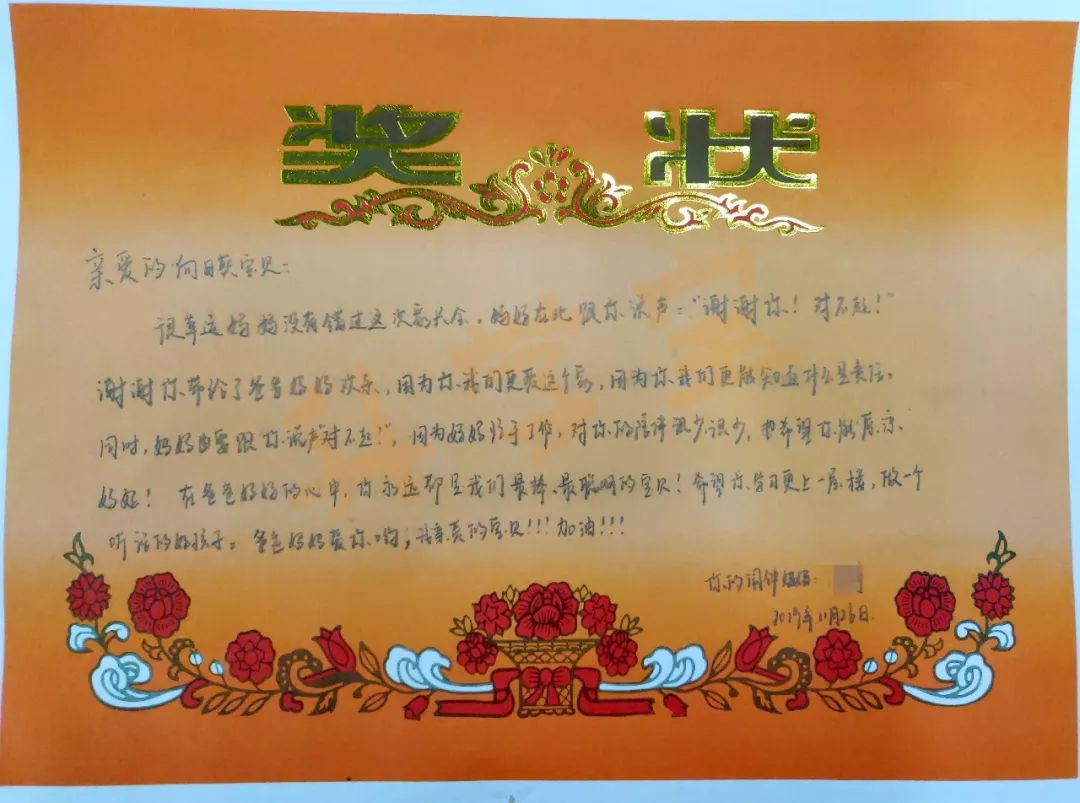 奖状
亲爱的向日葵宝贝：
很幸运妈妈没有错过这次家长会，妈妈在此跟你说声："谢谢你！对不起！"
谢谢你带给了爸爸妈妈欢乐，因为你我们更爱这个家，因为你我们更能知道什么是责任。
同时，妈妈也要跟你说声"对不起！"，因为妈妈忙于工作，对你的陪伴很少很少，也希望你能原谅
妈妈！在爸爸妈妈的心中，你永远都是我们最棒、最聪明的宝贝！希望你学习更上一层楼，做一个
听话的好孩子。爸爸妈妈爱你哟，我亲爱的宝贝！！！加油！！！
你的闹钟妈妈：
2019年11月26日.